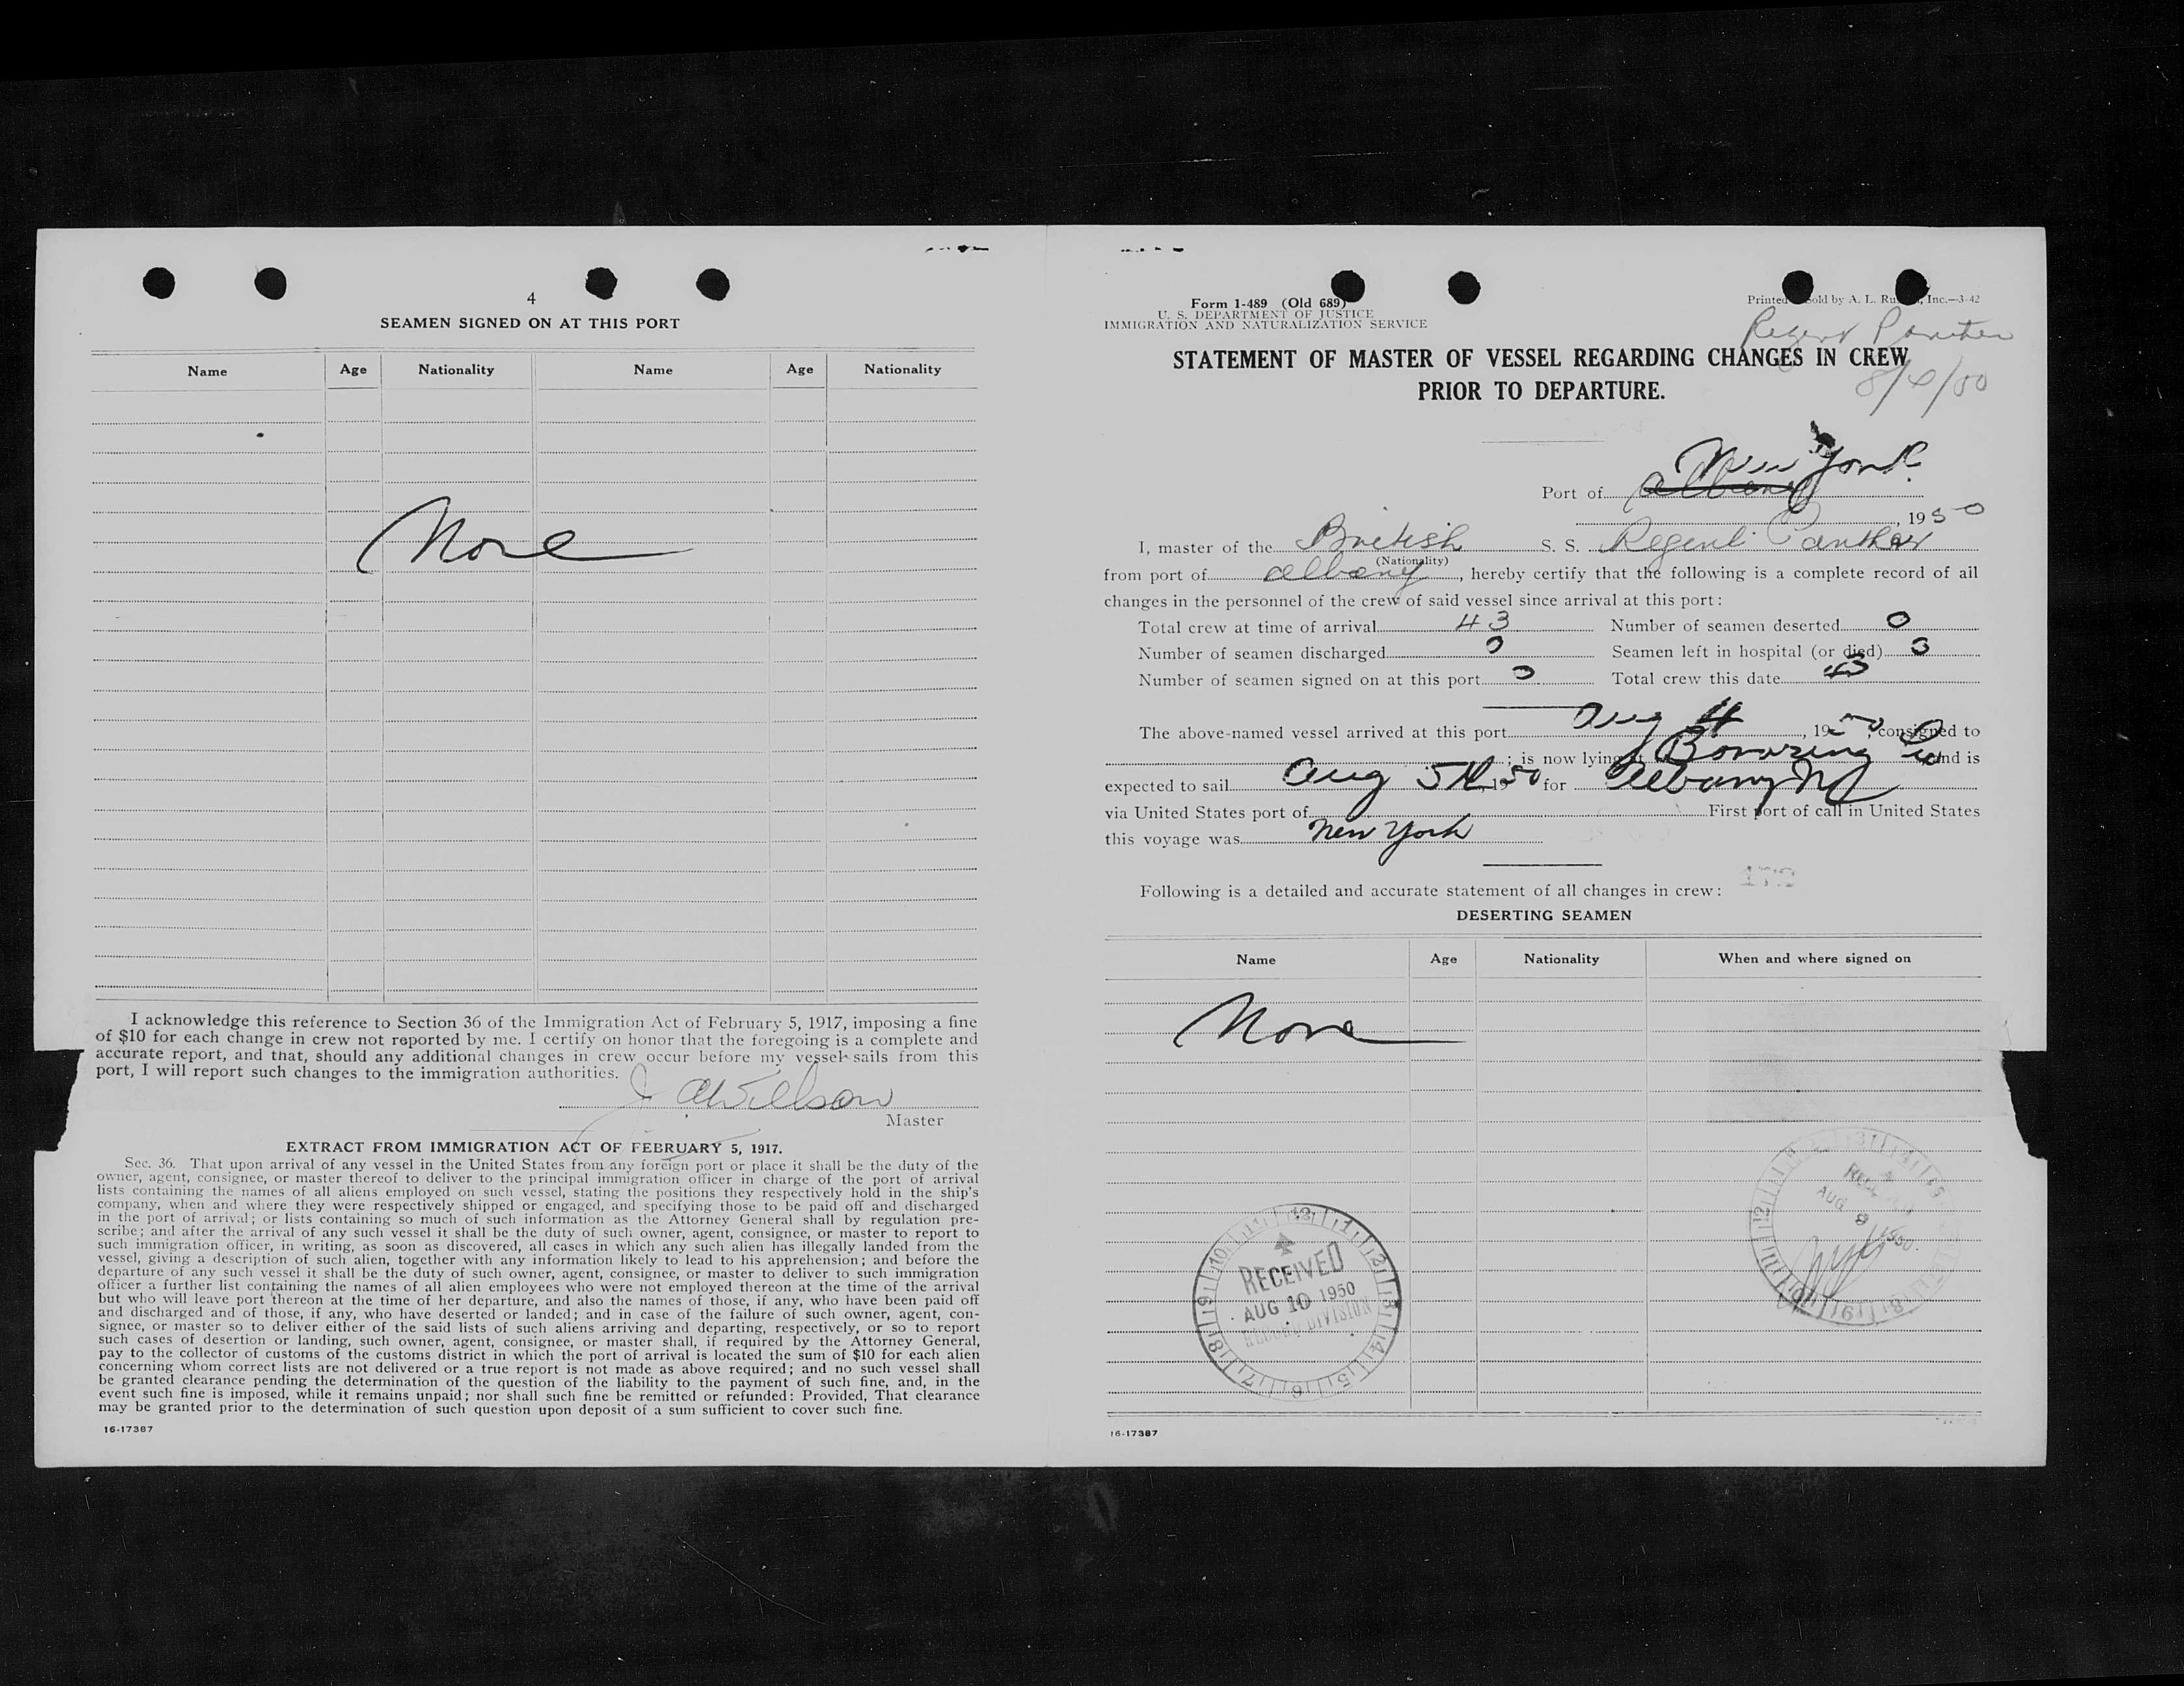 4
SEAMEN SIGNED ON AT THIS PORT
Name Age Nationality Name Age Nationality
None
I acknowledge this reference to Section 36 of the Immigration Act of February 5, 1917, imposing a fine
of $10 for each change in crew not reported by me. I certify on honor that the foregoing is a complete and
accurate report, and that, should any additional changes in crew occur before my vessel sails from this
port, I will report such changes to the immigration authorities.
J A Willson
Master
EXTRACT FROM IMMIGRATION ACT OF FEBRUARY 5, 1917.
Sec. 36. That upon arrival of any vessel in the United States from any foreign port or place it shall be the duty of the
owner, agent, consignee, or master thereof to deliver to the principal immigration officer in charge of the port of arrival
lists containing the names of all aliens employed on such vessel, stating the positions they respectively hold in the ship's
company, when and where they were respectively shipped or engaged, and specifying those to be paid off and discharged
in the port of arrival; or lists containing so much of such information as the Attorney General shall by regulation pre-
scribe; and after the arrival of any such vessel it shall be the duty of such owner, agent, consignee, or master to report to
such immigration officer, in writing, as soon as discovered, all cases in which any such alien has illegally landed from the
vessel, giving a description of such alien, together with any information likely to lead to his apprehension; and before the
departure of any such vessel it shall be the duty of such owner, agent, consignee, or master to deliver to such immigration
officer a further list containing the names of all alien employees who were not employed thereon at the time of the arrival
but who will leave port thereon at the time of her departure, and also the names of those, if any, who have been paid off
and discharged and of those, if any, who have deserted or landed; and in case of the failure of such owner, agent, con-
signee, or master so to deliver either of the said lists of such aliens arriving and departing, respectively, or so to report
such cases of desertion or landing, such owner, agent, consignee, or master shall, if required by the Attorney General,
pay to the collector of customs of the customs district in which the port of arrival is located the sum of $10 for each alien
concerning whom correct lists are not delivered or a true report is not made as above required; and no such vessel shall
be granted clearance pending the determination of the question of the liability to the payment of such fine, and, in the
event such fine is imposed, while it remains unpaid; nor shall such fine be remitted or refunded: Provided, That clearance
may be granted prior to the determination of such question upon deposit of a sum sufficient to cover such fine.
16-17387
Form 1-489 (Old 689)
U. S. DEPARTMENT OF JUSTICE
IMMIGRATION AND NATURALIZATION SERVICE
Printed sold by A. L. Inc.—3-42
Regent Panther
STATEMENT OF MASTER OF VESSEL REGARDING CHANGES IN CREW
PRIOR TO DEPARTURE.
New York
Port of Albany
, 1950
I, master of the British S. S. Regent Panther
(Nationality)
from port of Albany, hereby certify that the following is a complete record of all
changes in the personnel of the crew of said vessel since arrival at this port:
Total crew at time of arrival 43 Number of seamen deserted 0
Number of seamen discharged 0 Seamen left in hospital (or died) 0
Number of seamen signed on at this port 0 Total crew this date 43
The above-named vessel arrived at this port Aug 4, 1950, consigned to
; is now lying at and is
expected to sail Aug 5th, 1950 for Albany NY
via United States port of First port of call in United States
this voyage was New York
Following is a detailed and accurate statement of all changes in crew:
DESERTING SEAMEN
Name Age Nationality When and where signed on
None
RECEIVED
AUG 9 1950
RECEIVED
AUG 10 1950
RECORD DIVISION
16-17387